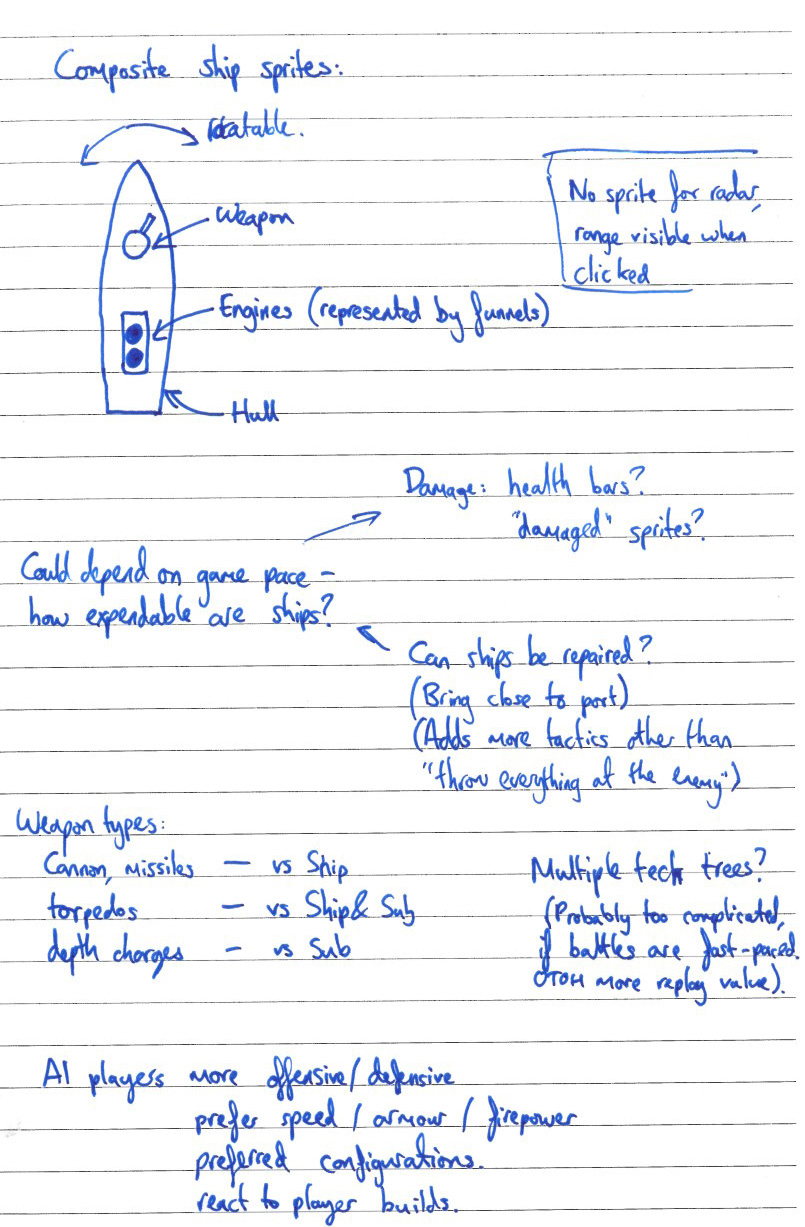 Composite ship sprites:
rotatable.
Weapon
Engines (represented by funnels)
Hull
No sprite for radar,
range visible when
clicked
Damage: health bars?
"damaged" sprites?
Could depend on game pace –
how expendable are ships?
Can ships be repaired?
(Bring close to port)
(Adds more tactics other than
"throw everything at the enemy")
Weapon types:
Cannon, missiles – vs Ship
torpedos – vs Ship & Sub
depth charges – vs Sub
Multiple tech trees?
(Probably too complicated,
if battles are fast-paced.
OTOH more replay value).
AI players more offensive/defensive
prefer speed / armour / firepower
preferred configurations.
react to player builds.